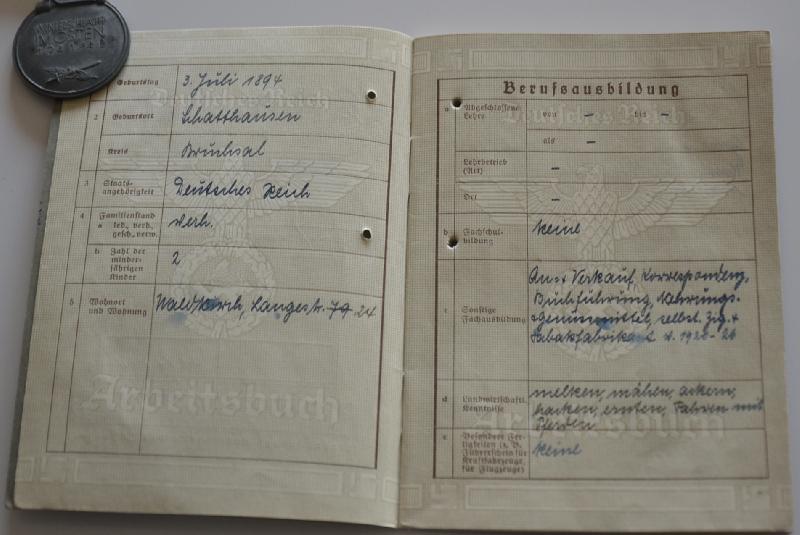 WINTERSCHLACHT
IM OSTEN
1941/42
Deutsches Reich
Geburtstag 3. Juli 1894
2 Geburtsort Schatthausen
Kreis Bruchsal
3 Staats-
angehörigkeit Deutsches Reich
4 Familienstand
a led., verh.,
gesch., verw. verh.
b Zahl der
minder-
jährigen
Kinder 2
5 Wohnort
und Wohnung Waldkirch, Langestr. 79 24
Arbeitsbuch
Berufsausbildung
Deutsches Reich
a Abgeschlossene
Lehre von – bis –
als –
Lehrbetrieb
(Art) –
Ort –
b Fachschul-
bildung keine
c Sonstige
Fachausbildung An- & Verkauf, Korrespondenz,
Buchführung, Nahrungs-
& Genußmittel, selbst. Zig. &
Tabakfabrikant v. 1920-26
d Landwirtschaftl.
Kenntnisse melken, mähen, ackern,
hacken, ernten, Fahren mit
Pferden
e Besondere Fer-
tigkeiten (z. B.
Führerschein für
Kraftfahrzeuge,
für Flugzeuge) keine
Arbeitsbuch